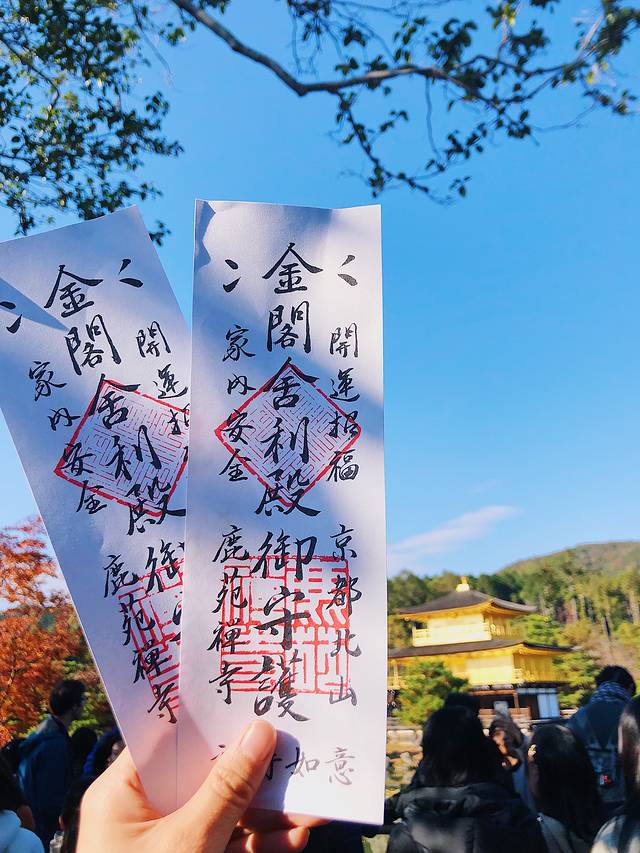 開運招福
京都北山
金閣舎利殿御守護
家内安全
鹿苑禪寺
如意
開運招
金閣舎利殿御
家内安全
鹿苑禪寺